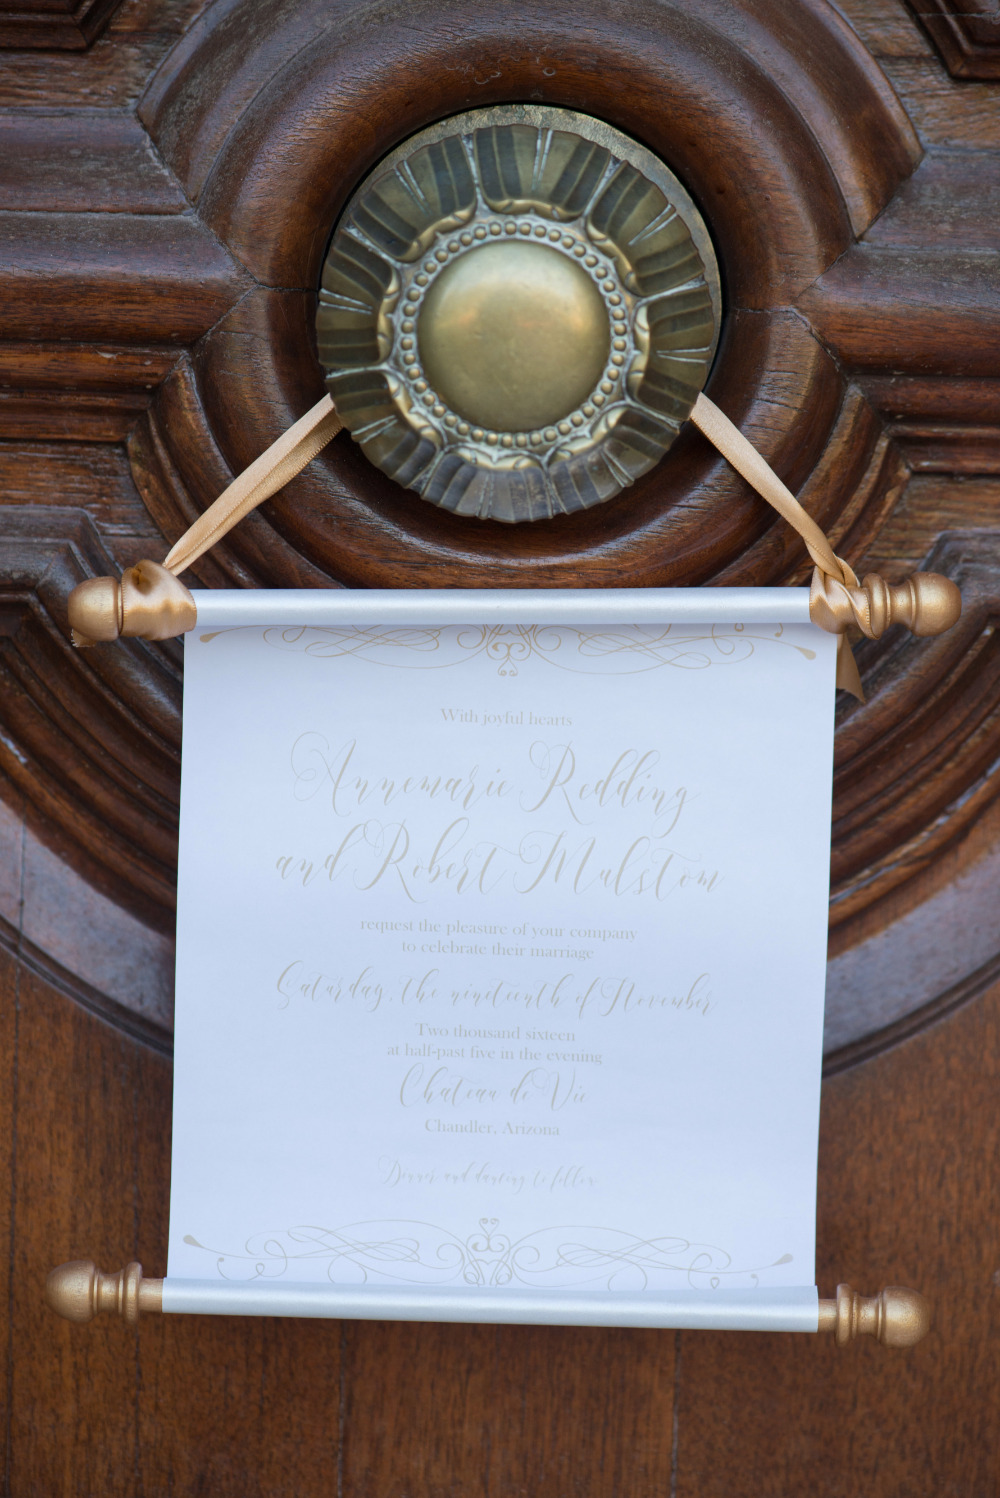 With joyful hearts
Annemarie Redding
and Robert Mulstom
request the pleasure of your company
to celebrate their marriage
Saturday, the nineteenth of November
Two thousand sixteen
at half-past five in the evening
Chateau de Vie
Chandler, Arizona
Dinner and dancing to follow